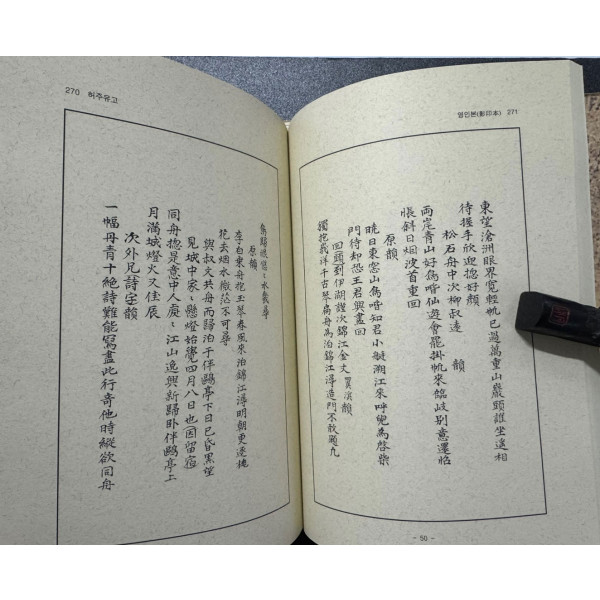 영인본(影印本) 271
東望滄洲眼界寬輕帆已過萬重山巖頭誰坐遙相
待握手欣迎摠好顔
松石舟中次柳叔達 韻
兩岸青山好鳥喈仙遊會罷掛帆來臨歧別意還怊
悵斜日烟波首重回
原韻
曉日東窓山鳥喈知君小艇溯江來呼兒爲啓柴
門待却恐王君興盡回
回頭到伊湖謹次錦江金丈韻
獨抱峩洋千古琴扁舟爲泊錦江潯造門不敢題凡
- 50 -
270 허주유고
歸悵〻水幾尋
原韻
李白東舟抱玉琴春風來泊錦江潯明朝更逐桃
花去烟水微茫不可尋
與叔文共舟而歸泊于伴鷗亭下日已昏黑望
見城中家〻懸燈始覺四月八日也因留宿
同舟摠是意中人處〻江山逸興新歸卧伴鷗亭上
月滿城燈火又佳辰
次外兄詩字韻
一幅丹青十絕詩難能寫盡此行奇他時縱欲同舟